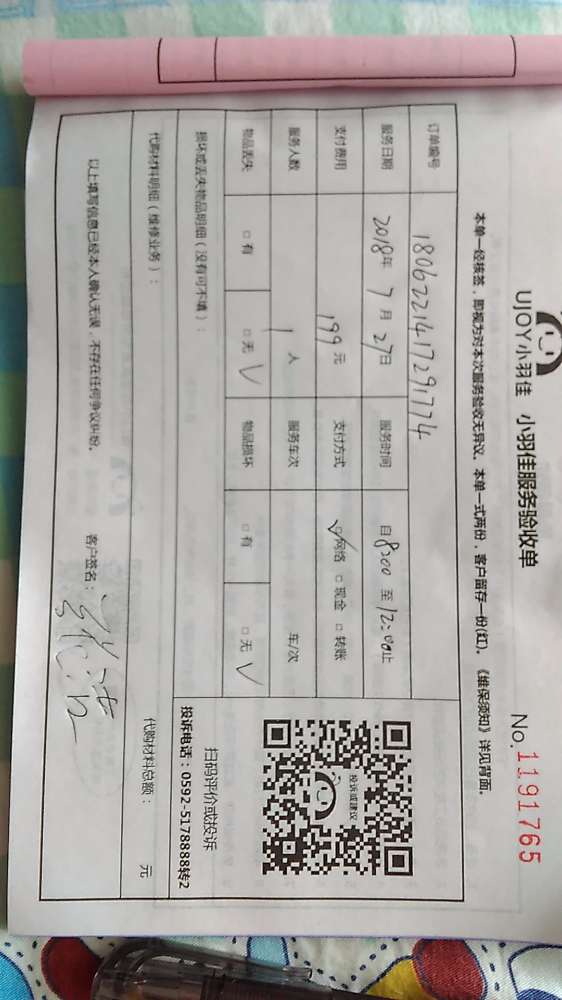 UJOY小羽佳 小羽佳服务验收单
No. 1191765
本单一经核签，即视为对本次服务验收无异议。本单一式两份，客户留存一份(红)。《维保须知》详见背面。
订单编号 1806221417291774
服务日期 2018年 7 月 27日 服务时间 自 8:00 至 12:00止
支付费用 199 元 支付方式 □网络 □现金 □转账
服务人数 1 人 服务车次 车/次
物品丢失 □有 □无 √ 物品损坏 □有 □无 √
投诉或建议
扫码评价或投诉
投诉电话：0592-5178888转2
损坏或丢失物品明细（没有可不填）：
代购材料明细（维修业务）： 代购材料总额： 元
以上填写信息已经本人确认无误，不存在任何争议纠纷。 客户签名：